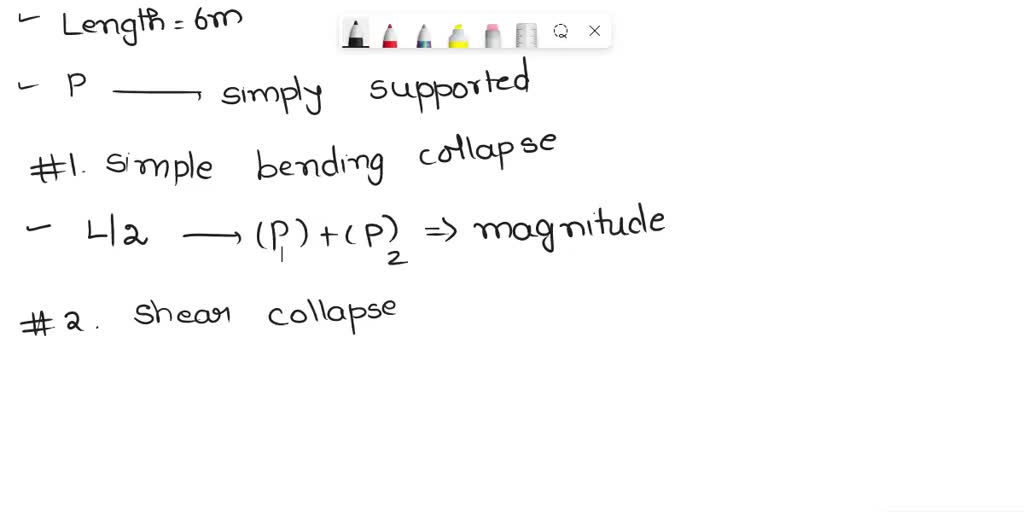 - Length = 6m
- P → simply supported
#1. simple bending collapse
- L/2 → (P)1 + (P)2 => magnitude
#2. shear collapse